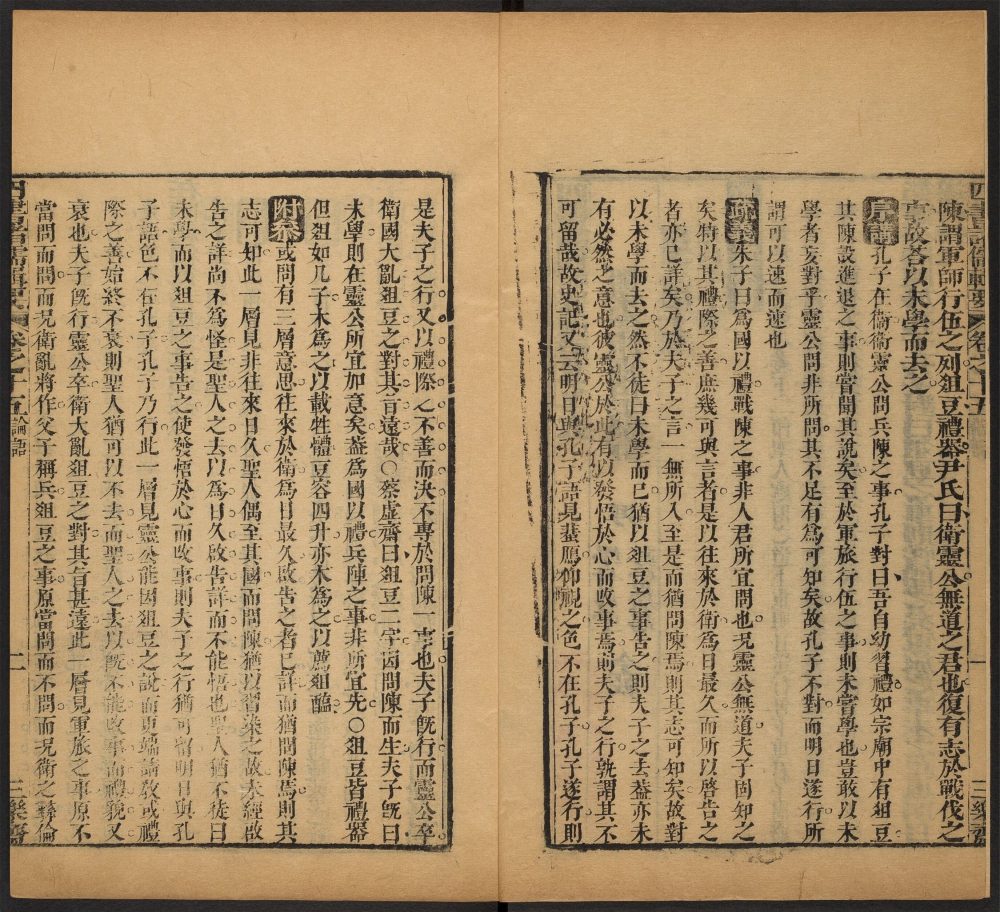 四書諸儒輯要 卷之十五 一 三樂齋
陳謂軍師行伍之列俎豆禮器尹氏曰衛靈公無道之君也復有志於戰伐之
事故答以未學而去之
孔子在衛衛靈公問兵陳之事孔子對曰吾自幼習禮如宗廟中有俎豆
其陳設進退之事則嘗聞其說矣至於軍旅行伍之事則未嘗學也豈敢以未
學者妄對乎靈公問非所問其不足有為可知矣故孔子不對而明日遂行所
謂可以速而速也
朱子曰為國以禮戰陳之事非人君所宜問也況靈公無道夫子固知之
矣特以其禮際之善庶幾可與言者是以往來於衛為日最久而所以啓告之
者亦已詳矣乃於夫子之言一無所入至是而猶問陳焉則其志可知矣故對
以未學而去之然不徒曰未學而已猶以俎豆之事告之則夫子之去蓋亦未
有必然之意也彼靈公於此有以發悟於心而改事焉則夫子之行孰謂其不
可留哉故史記又云明日與孔子語見蜚鴈仰視之色不在孔子孔子遂行則
是夫子之行又以禮際之不善而決不專於問陳一事也夫子既行而靈公卒
衛國大亂俎豆之對其旨遠哉○蔡虛齋曰俎豆二字因問陳而生夫子既曰
未學則在靈公所宜加意矣蓋為國以禮兵陣之事非所宜先○俎豆皆禮器
但俎如几子木為之以載牲體豆容四升亦木為之以薦葅醢
附參或問有三層意思往來於衛為日最久啟告之者已詳而猶問陳焉則其
志可知此一層見非往來日久聖人偶至其國而問陳猶以習染之故未經啟
告之詳尚不為怪是聖人之去以為日久啟告詳而不能悟也聖人猶不徒曰
未學而以俎豆之事告之使發悟於心而改事則夫子之行猶可留明日與孔
子語色不在孔子孔子乃行此一層見靈公能因俎豆之說而更端請教或禮
際之善始終不衰則聖人猶可以不去而聖人之去以既不能改事而禮貌又
衰也夫子既行靈公卒衛大亂俎豆之對其旨甚遠此一層見軍旅之事原不
當問而問而況衛亂將作父子稱兵俎豆之事原當問而不問而況衛之彝倫
四書諸儒輯要 卷之十五 論語 二 三樂齋